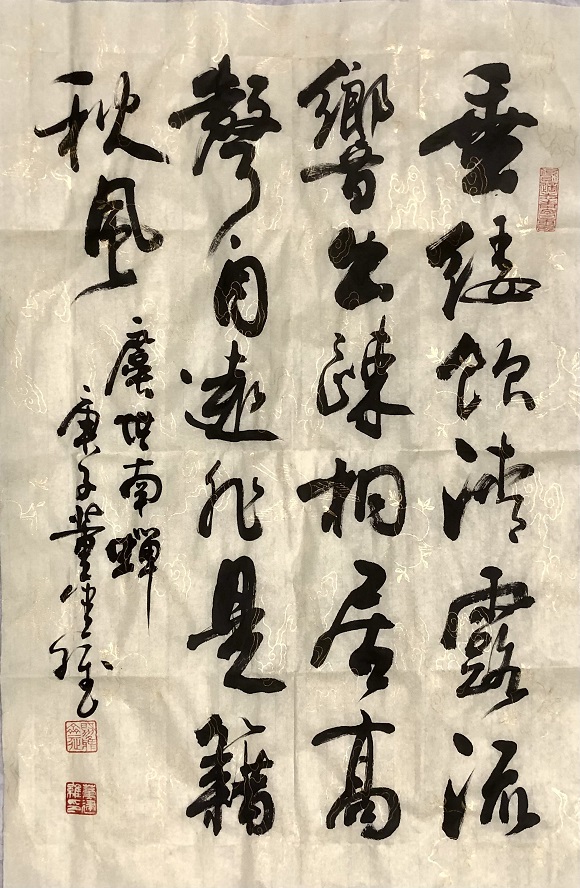 垂緌飲清露流
響出疎桐居高
聲自遠非是籍
秋風
虞世南蟬
庚子董